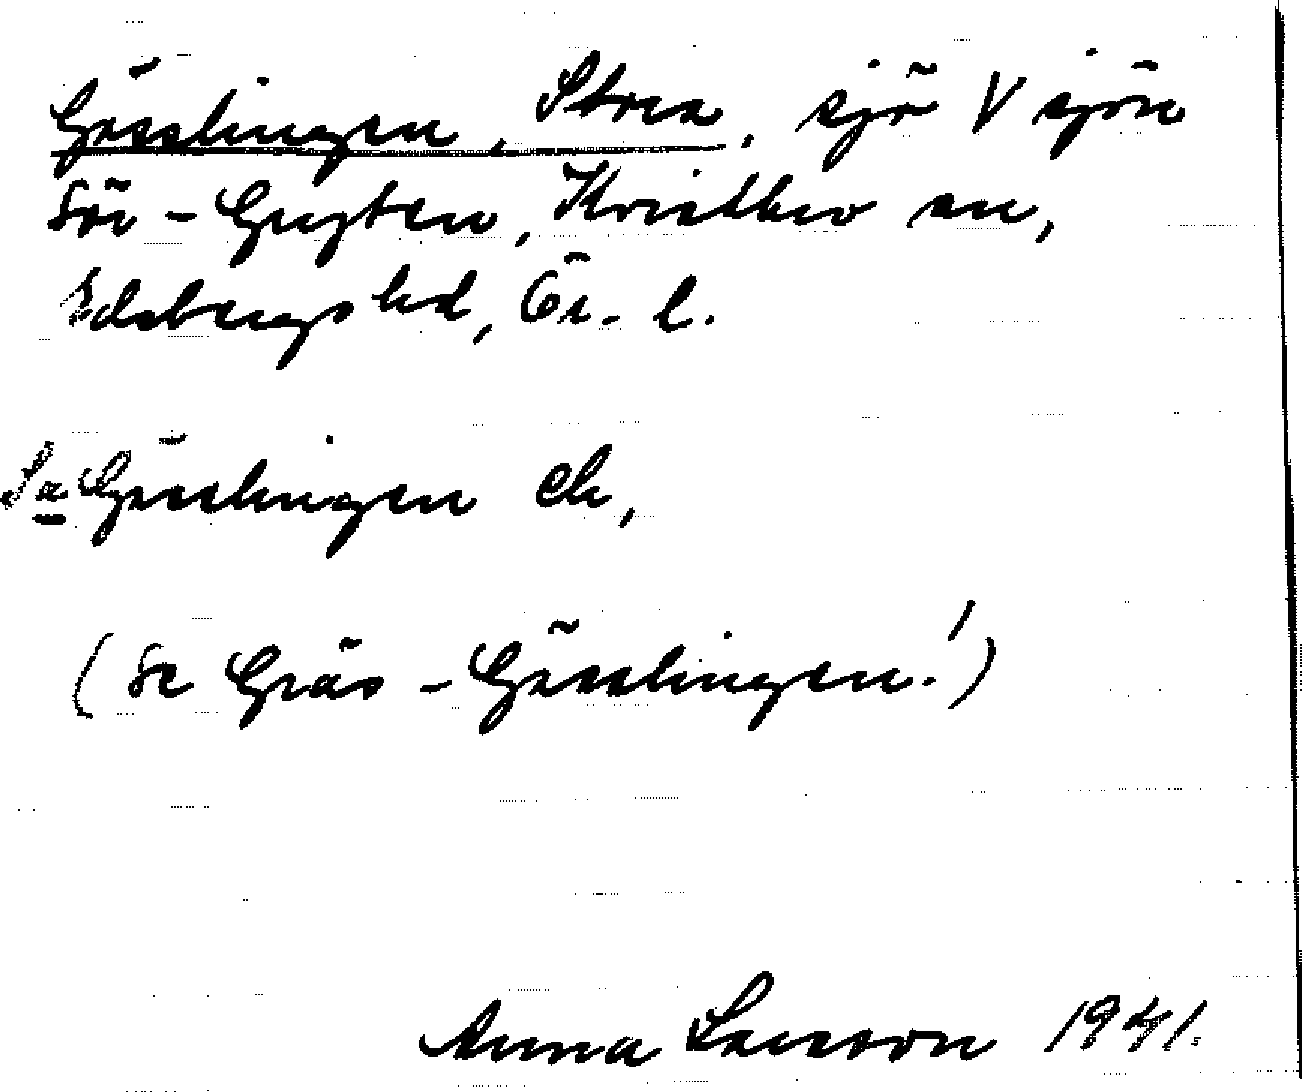 Gässlingen, Stora, sjö V sjön
Sör-Gryten, Kvistbro sn,
Edsbergs hd, Ör. l.
Sa Gässlingen ek,
(Se Gräs-Gässlingen!)
Anna Larsson 1941.